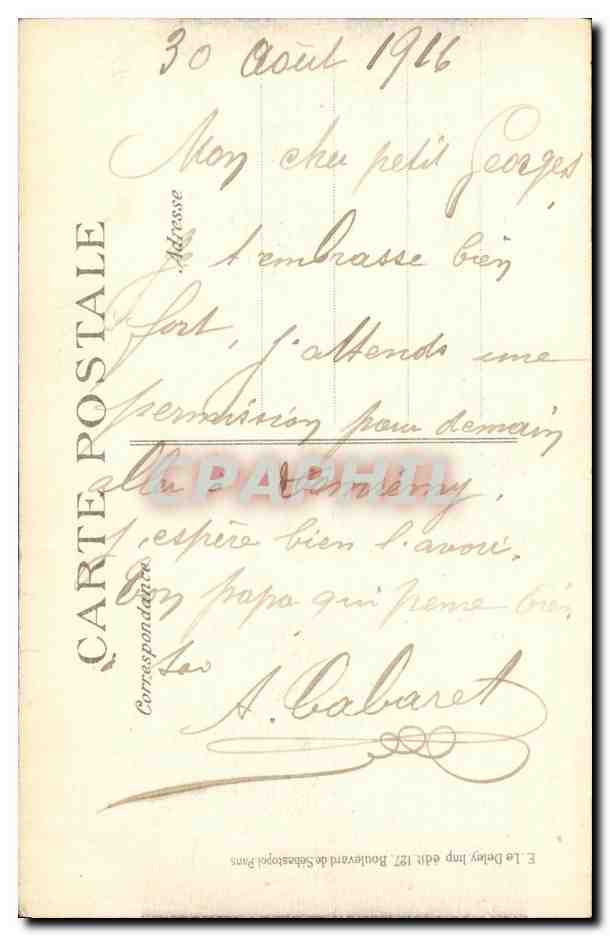 30 Août 1916
Mon cher petit Georges,
Je t'embrasse bien
fort, j'attends une
permission pour demain
aller à Domrémy,
j'espère bien l'avoir.
Ton papa qui pense bien
à toi
A. Cabaret
CARTE POSTALE
Correspondance
Adresse
CPAPHIL
E. Le Deley, Imp. édit. 127, Boulevard de Sébastopol Paris